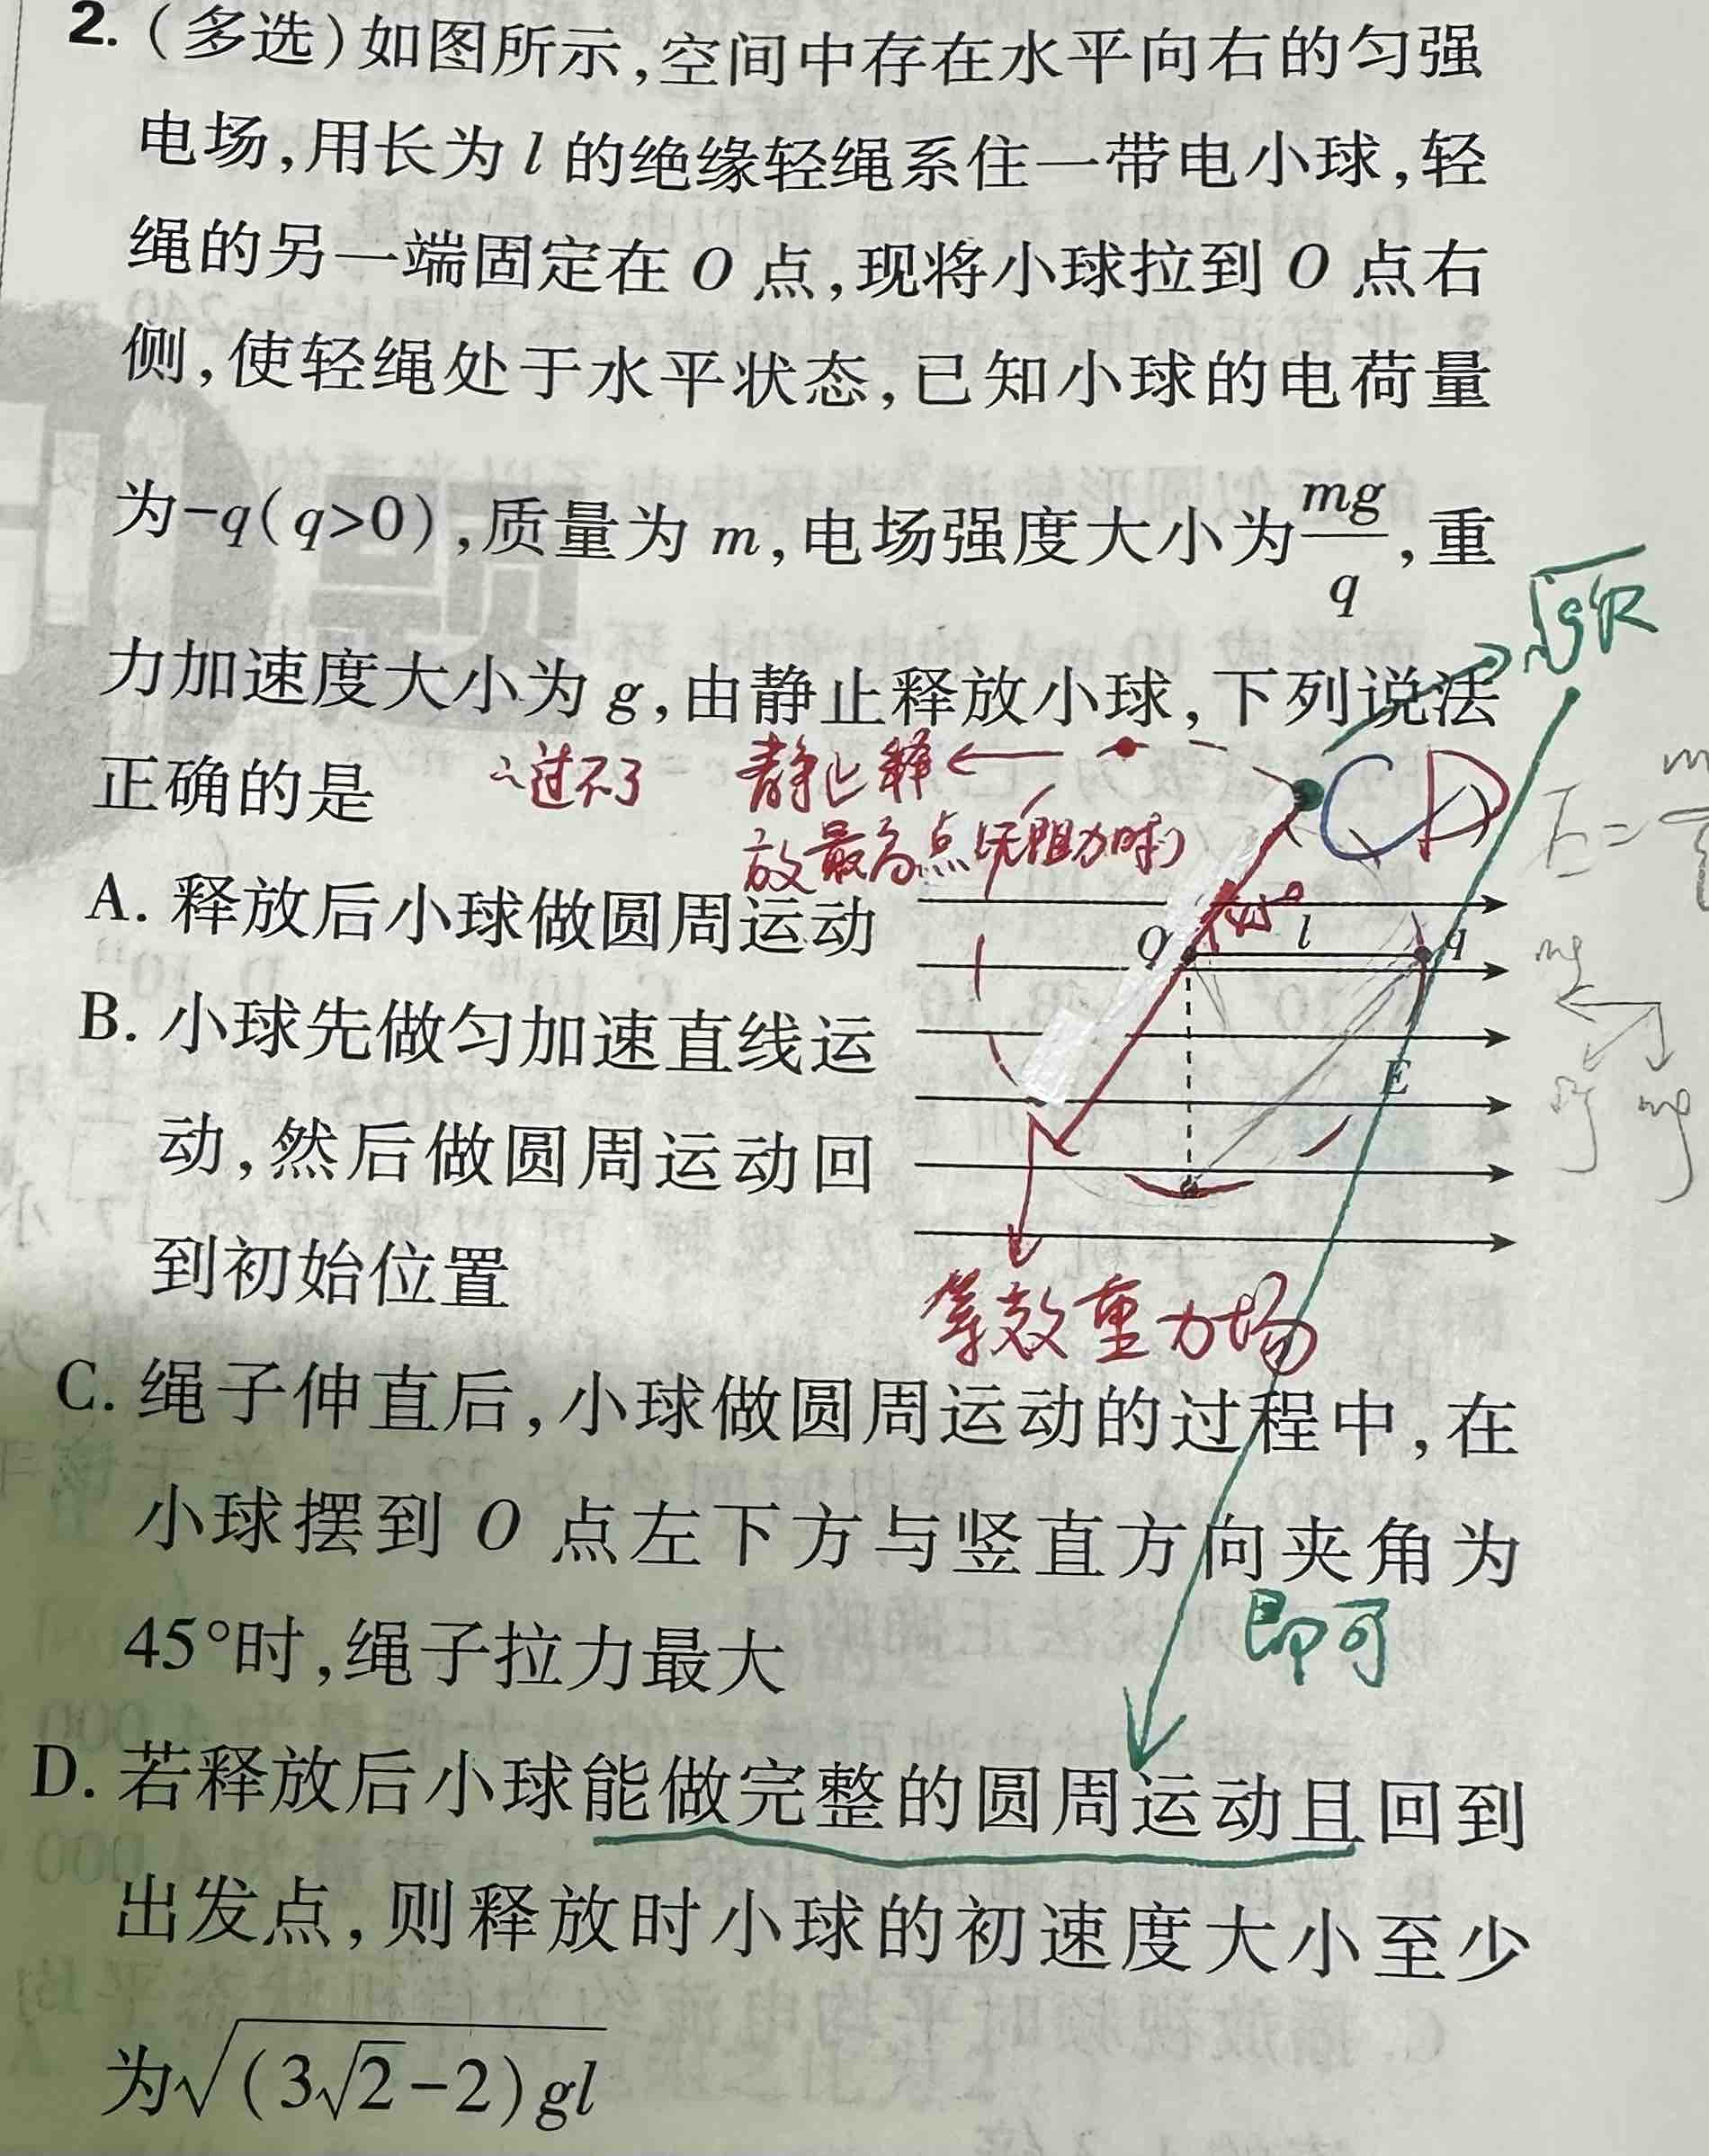 2. (多选)如图所示,空间中存在水平向右的匀强
电场,用长为 l 的绝缘轻绳系住一带电小球,轻
绳的另一端固定在 O 点,现将小球拉到 O 点右
侧,使轻绳处于水平状态,已知小球的电荷量
为-q(q>0),质量为 m,电场强度大小为mg/q,重
√gR
力加速度大小为 g,由静止释放小球,下列说法
正确的是
过不了 静止释
放最高点(无阻力时)
CD
E=
A. 释放后小球做圆周运动
45°
O l q
mg
B. 小球先做匀加速直线运
E
mg
动,然后做圆周运动回
到初始位置
等效重力场
C. 绳子伸直后,小球做圆周运动的过程中,在
小球摆到 O 点左下方与竖直方向夹角为
即可
45°时,绳子拉力最大
D. 若释放后小球能做完整的圆周运动且回到
出发点,则释放时小球的初速度大小至少
为√(3√2-2)gl